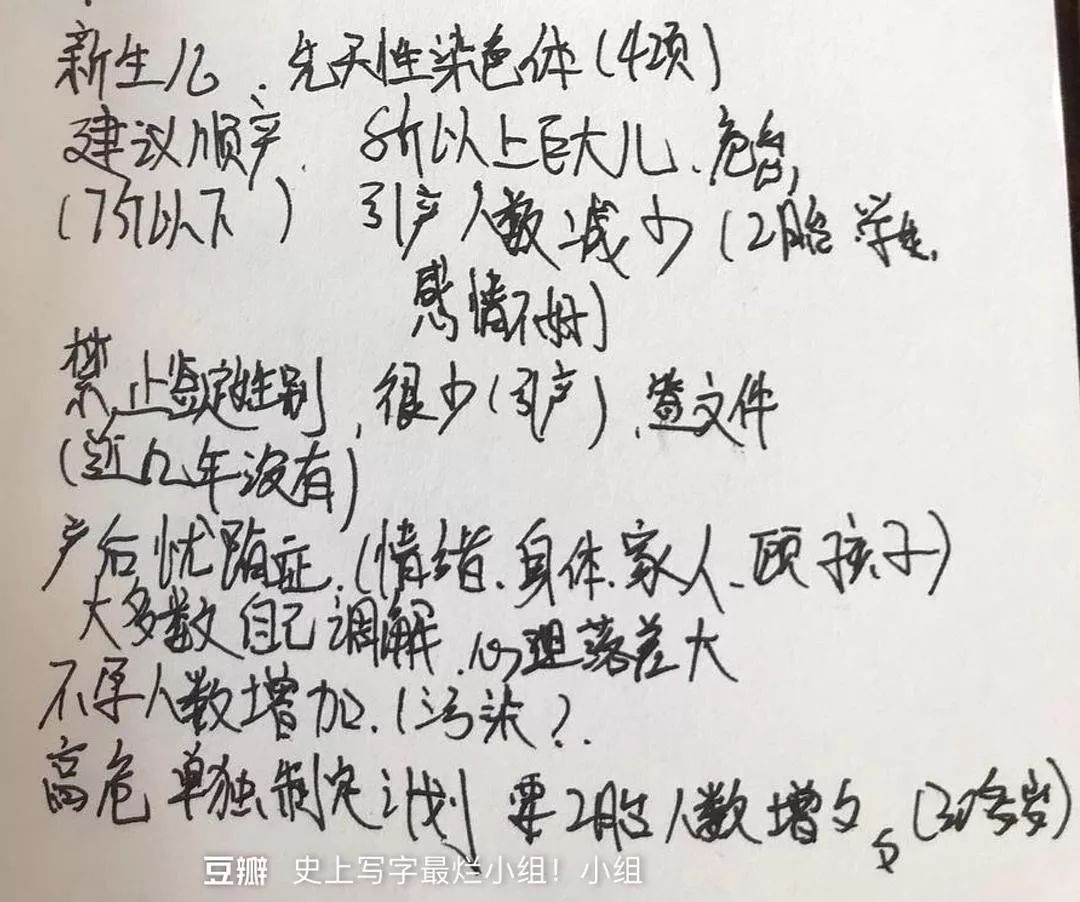 新生儿、先天性染色体(4项)
建议顺产、8斤以上巨大儿、危害,
(7斤以下) 引产人数减少(2胎 学生、
感情不好)
禁止鉴定性别,很少(引产)、签文件
(近几年没有)
产后忧郁症、(情绪、身体、家人、顾孩子)
大多数自己调解、心理落差大
不孕人数增加、(污染?
高危 单独制定计划 要2胎人数增多、(30多岁)
豆瓣 史上写字最烂小组!小组